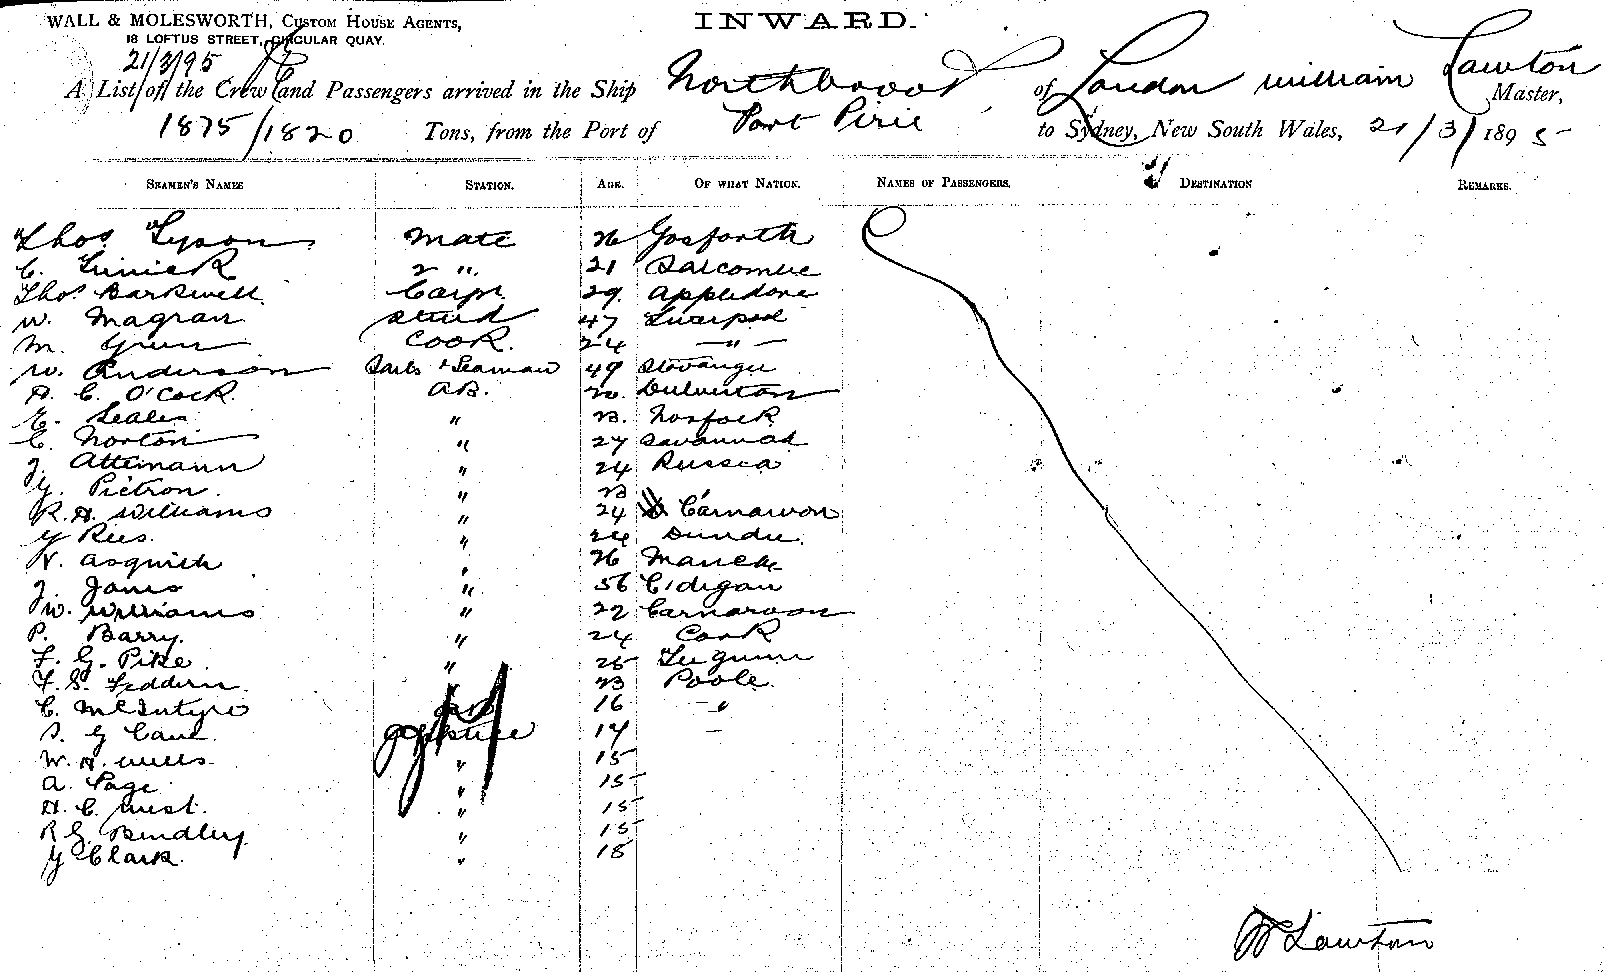 WALL & MOLESWORTH, CUSTOM HOUSE AGENTS,
18 LOFTUS STREET, CIRCULAR QUAY.
INWARD.
21/3/95
A List of the Crew and Passengers arrived in the Ship Northbrook of London William Lawton Master,
1875/1820 Tons, from the Port of Port Pirie to Sydney, New South Wales, 21/3/1895
SEAMEN'S NAMES STATION. AGE. OF WHAT NATION. NAMES OF PASSENGERS. DESTINATION REMARKS.
Thos Tyson Mate 26 Gosforth
C. 2 " 21 Salcombe
Thos Barkwell Carpr 29. Appledore
W. Magran Stwd 47 Liverpool
M. Green Cook. 24 — " —
W. Anderson Sails & Seaman 49 Stavanger
H. C. O'Cock. AB. 20. Dulverton
E. Seales " 23. Norfolk
C. Norton " 27 Savannah
J. Attemann " 24 Russia
G. Pietron. " 23
R. H. Williams " 24 Carnarvon
G Rees. " 24 Dundee.
N. Asquith " 26 Manch
J. Jones " 56 C'digan
W. Williams " 22 Carnarvon
P. Barry. " 24 Cork
F. G. Pike. " 25
F. S. Feddern. " 23 Poole.
C. McIntyre 16 — "
S. G Cane. 14 —
W. H. Wills. " 15
A. Page " 15
H. C. West. " 15
R G. Bindley " 15
G Clark. " 18
W Lawton